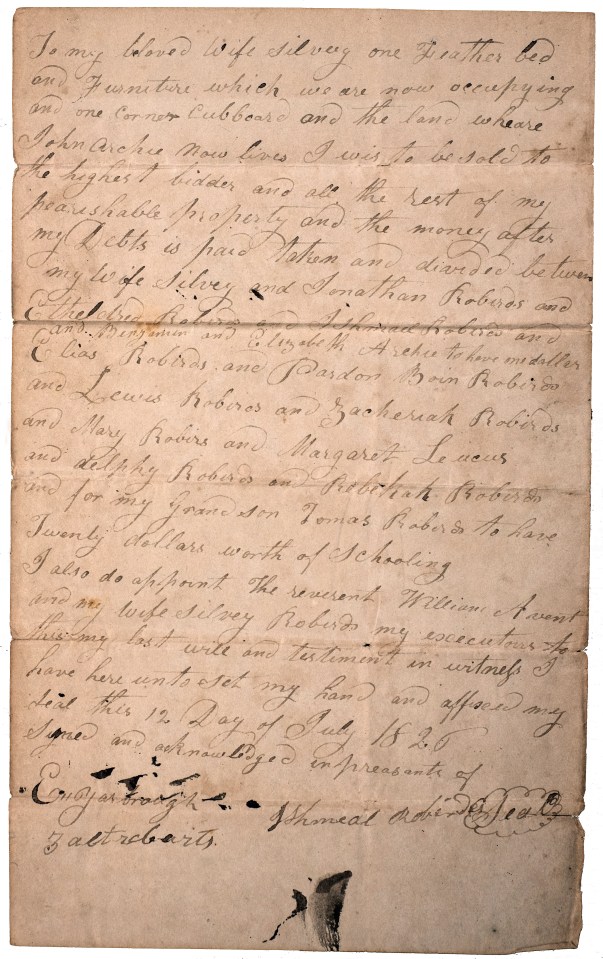 To my beloved wife Silvey one Feather bed
and Furniture which we are now occupying
and one corner Cubboard and the land wheare
John Archie now lives I wis to be sold to
the highest bidder and all the rest of my
pearishable property and the money after
my Debts is paid taken and divided between
my wife Silvey and Jonathan Roberds and
Etheldred Roberds and Ishmeal Roberds and
and Benjamin and Elizabeth Archie to have
Elias Roberds and Pardon Boin Roberds
and Lewis Roberds and Zacheriah Roberds
and Mary Robirs and Margaret Leucus
and delphy Roberds and Rebekah Roberds
and for my Grand son Tomas Roberds to have
Twenty dollars worth of Schooling
I also do appoint the reverent William Avent
and my wife Silvey Roberds my executors to
this my last will and testiment in witness I
have here unto set my hand and affixed my
seal this 12 Day of July 1826
Signed and acknowledged in preasants of
Yasbrough
Ishmeal Roberds Seal